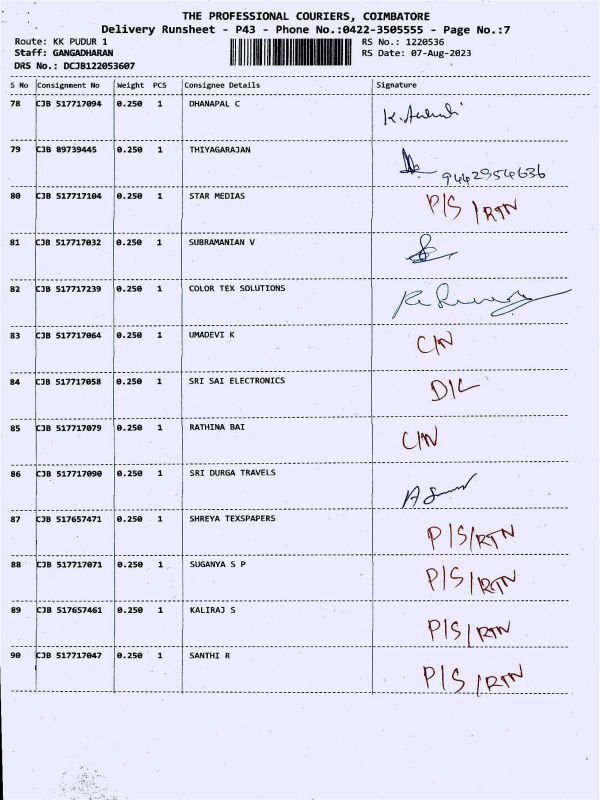 THE PROFESSIONAL COURIERS, COIMBATORE
Delivery Runsheet - P43 - Phone No.:0422-3505555 - Page No.:7
Route: KK PUDUR 1 RS No.: 1220536
Staff: GANGADHARAN RS Date: 07-Aug-2023
DRS No.: DCJB122053607
S No Consignment No Weight PCS Consignee Details Signature
78 CJB 517717094 0.250 1 DHANAPAL C
79 CJB 89739445 0.250 1 THIYAGARAJAN
9442954636
80 CJB 517717104 0.250 1 STAR MEDIAS P/S/RTN
81 CJB 517717032 0.250 1 SUBRAMANIAN V
82 CJB 517717239 0.250 1 COLOR TEX SOLUTIONS
83 CJB 517717064 0.250 1 UMADEVI K C/N
84 CJB 517717058 0.250 1 SRI SAI ELECTRONICS D/L
85 CJB 517717079 0.250 1 RATHINA BAI C/N
86 CJB 517717090 0.250 1 SRI DURGA TRAVELS
87 CJB 517657471 0.250 1 SHREYA TEXSPAPERS P/S/RTN
88 CJB 517717071 0.250 1 SUGANYA S P P/S/RTN
89 CJB 517657461 0.250 1 KALIRAJ S P/S/RTN
90 CJB 517717047 0.250 1 SANTHI R P/S/RTN